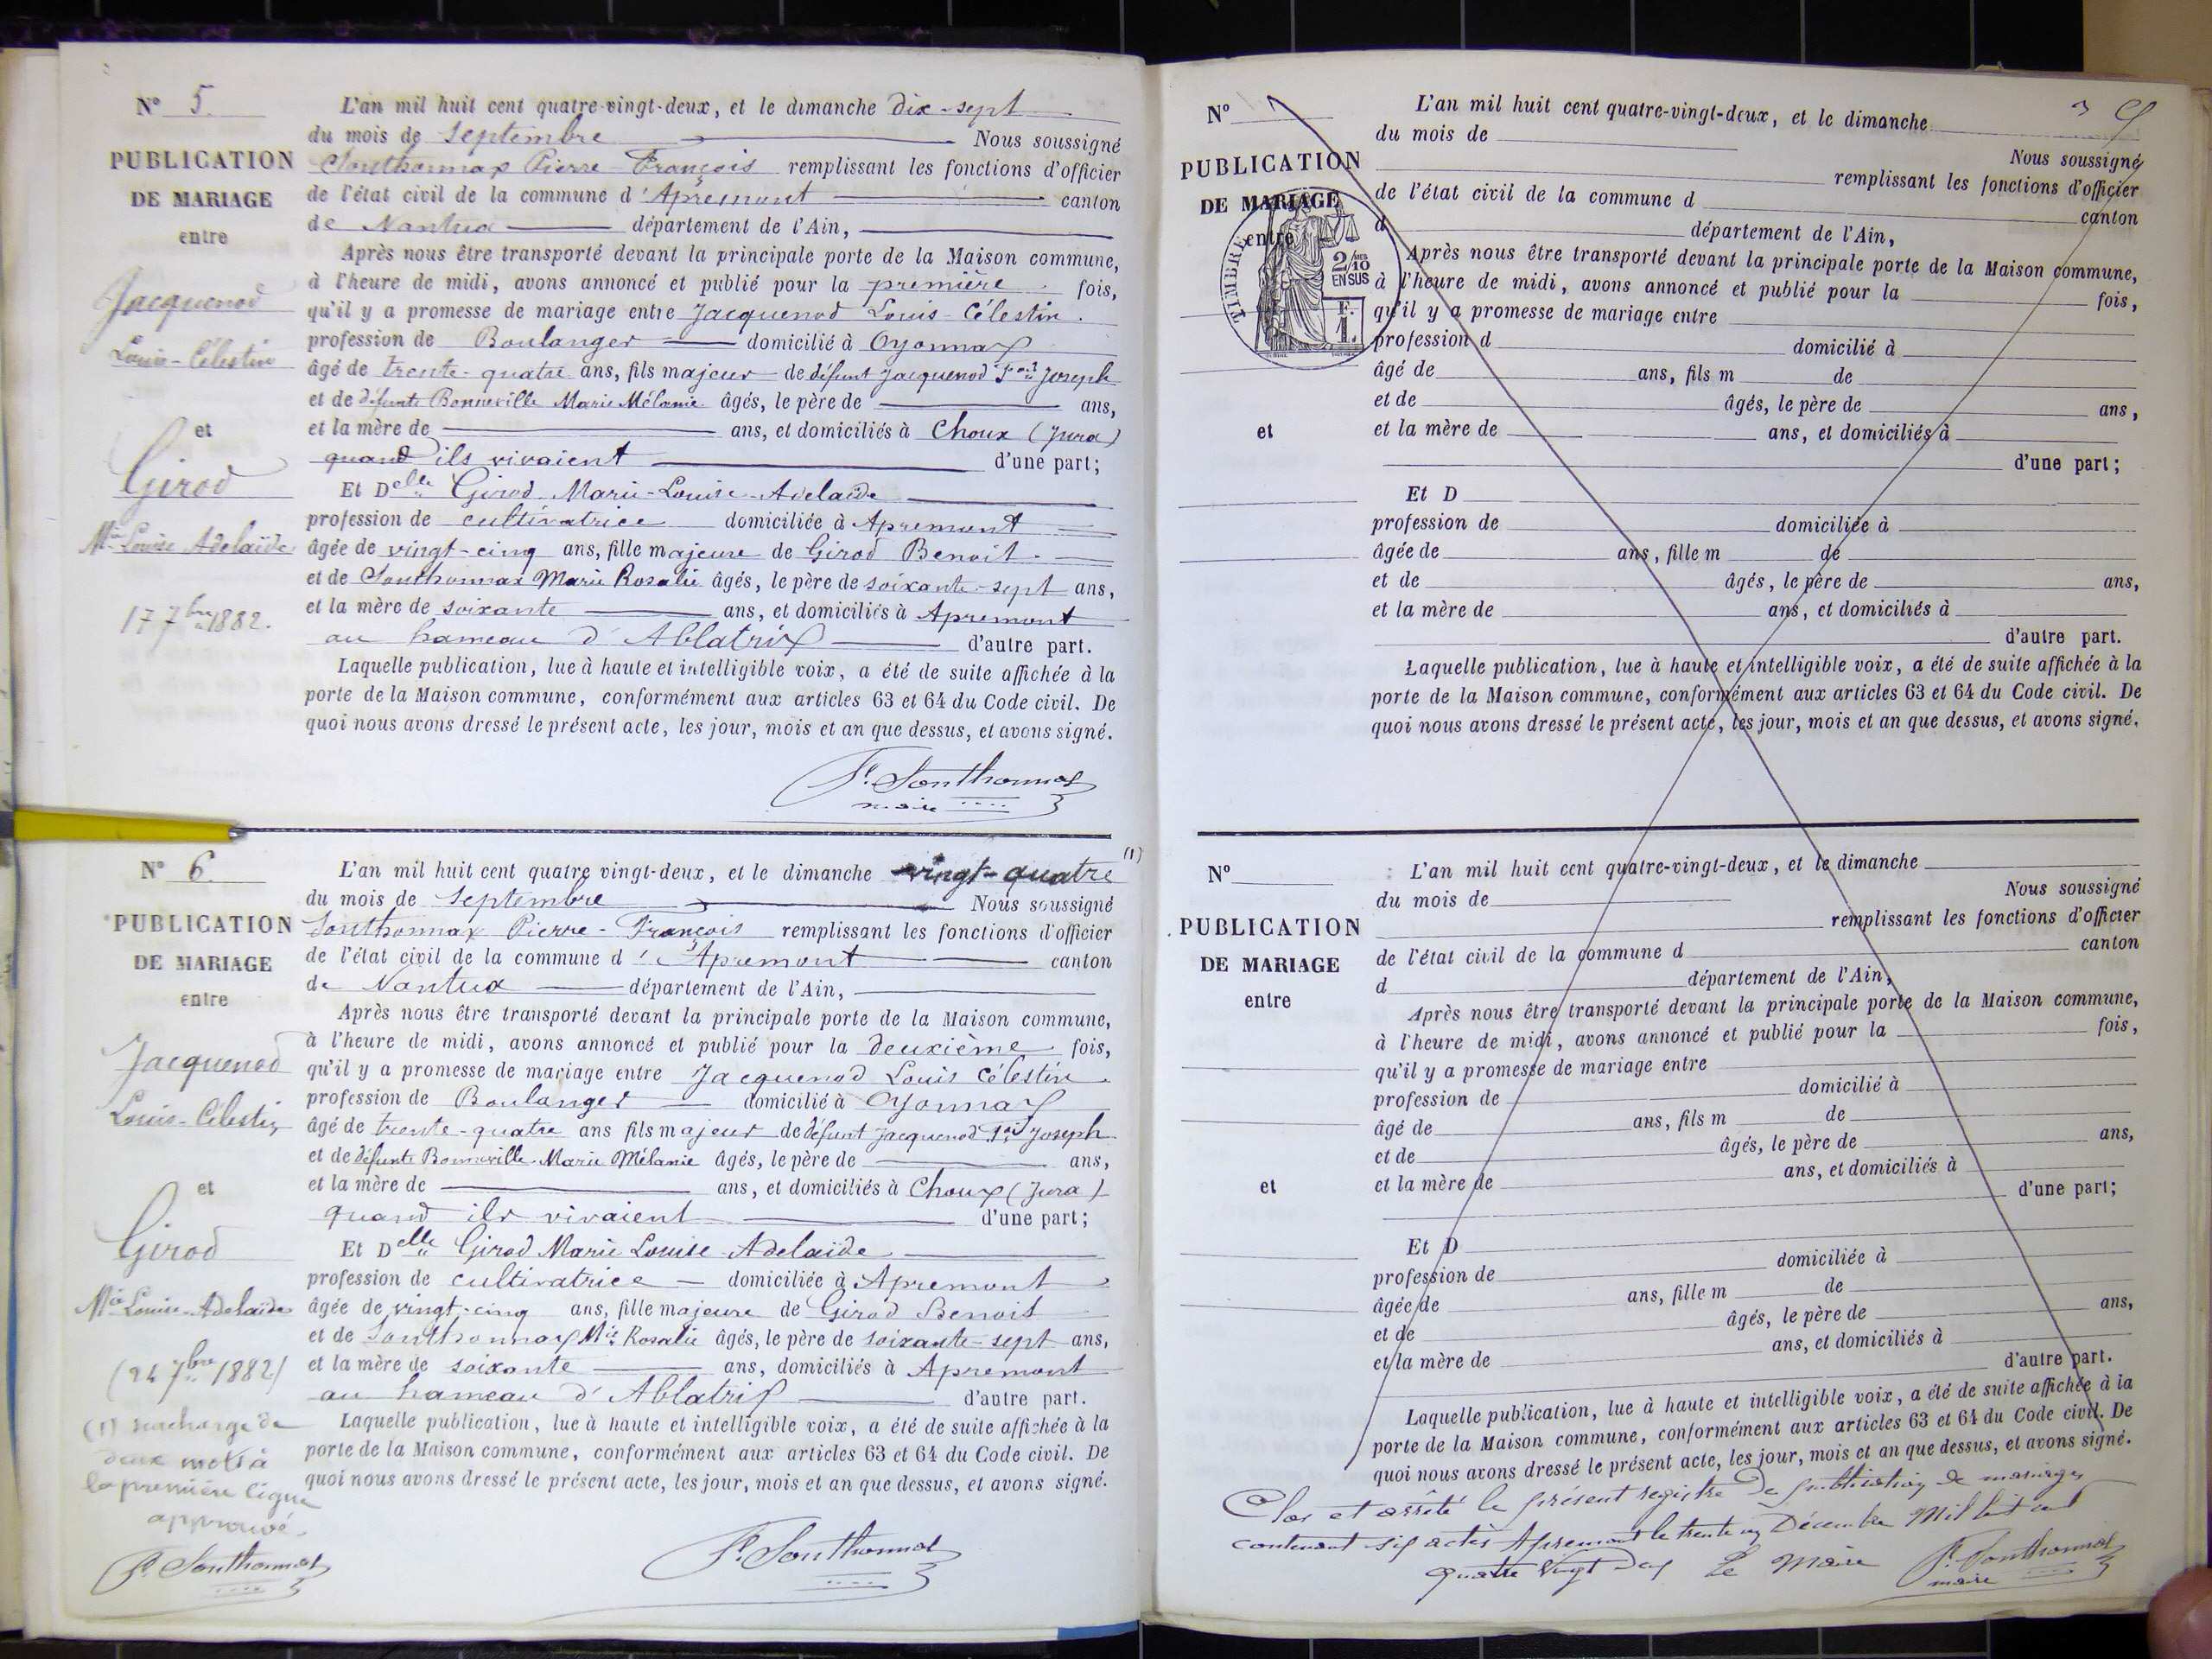 N° 5.
PUBLICATION
DE MARIAGE
entre
Jacquenod
Louis-Célestin
et
Girod
Mie Louise Adelaïde
17 7bre 1882.
L'an mil huit cent quatre-vingt-deux, et le dimanche dix-sept
du mois de septembre Nous soussigné
Sonthonnax Pierre-François remplissant les fonctions d'officier
de l'état civil de la commune d'Apremont canton
de Nantua département de l'Ain,
Après nous être transporté devant la principale porte de la Maison commune,
à l'heure de midi, avons annoncé et publié pour la première fois,
qu'il y a promesse de mariage entre Jacquenod Louis-Célestin.
profession de Boulanger domicilié à Oyonnax
âgé de trente-quatre ans, fils majeur de défunt Jacquenod Joseph
et de défunte Bonneville Marie Mélanie âgés, le père de ans,
et la mère de ans, et domiciliés à Choux (Jura)
quand ils vivaient d'une part;
Et Delle Girod Marie-Louise-Adelaïde
profession de cultivatrice domiciliée à Apremont
âgée de vingt-cinq ans, fille majeure de Girod Benoit.
et de Sonthonnax Marie Rosalie âgés, le père de soixante-sept ans,
et la mère de soixante ans, et domiciliés à Apremont
au hameau d'Ablatrix d'autre part.
Laquelle publication, lue à haute et intelligible voix, a été de suite affichée à la
porte de la Maison commune, conformément aux articles 63 et 64 du Code civil. De
quoi nous avons dressé le présent acte, les jour, mois et an que dessus, et avons signé.
P. Sonthonnax
maire
N° 6.
PUBLICATION
DE MARIAGE
entre
Jacquenod
Louis-Célestin
et
Girod
Mie Louise-Adelaïde
(24 7bre 1882)
(1) surcharge de
deux mots à
la première ligne
approuvé.
P. Sonthonnax
L'an mil huit cent quatre vingt-deux, et le dimanche vingt-quatre (1)
du mois de septembre Nous soussigné
Sonthonnax Pierre-François remplissant les fonctions d'officier
de l'état civil de la commune d'Apremont canton
de Nantua département de l'Ain,
Après nous être transporté devant la principale porte de la Maison commune,
à l'heure de midi, avons annoncé et publié pour la deuxième fois,
qu'il y a promesse de mariage entre Jacquenod Louis Célestin.
profession de Boulanger domicilié à Oyonnax
âgé de trente-quatre ans fils majeur de défunt Jacquenod Joseph
et de défunte Bonneville Marie Mélanie âgés, le père de ans,
et la mère de ans, et domiciliés à Choux (Jura)
quand ils vivaient d'une part;
Et Delle Girod Marie Louise Adelaïde
profession de cultivatrice domiciliée à Apremont
âgée de vingt-cinq ans, fille majeure de Girod Benoit
et de Sonthonnax Mie Rosalie âgés, le père de soixante-sept ans,
et la mère de soixante ans, domiciliés à Apremont
au hameau d'Ablatrix d'autre part.
Laquelle publication, lue à haute et intelligible voix, a été de suite affichée à la
porte de la Maison commune, conformément aux articles 63 et 64 du Code civil. De
quoi nous avons dressé le présent acte, les jour, mois et an que dessus, et avons signé.
P. Sonthonnax
N°
PUBLICATION
DE MARIAGE
entre
TIMBRE
2/10
EN SUS
F.
1.
et
L'an mil huit cent quatre-vingt-deux, et le dimanche
du mois de Nous soussigné
remplissant les fonctions d'officier
de l'état civil de la commune d canton
d département de l'Ain,
Après nous être transporté devant la principale porte de la Maison commune,
à l'heure de midi, avons annoncé et publié pour la fois,
qu'il y a promesse de mariage entre
profession d domicilié à
âgé de ans, fils m de
et de âgés, le père de ans,
et la mère de ans, et domiciliés à
d'une part;
Et D
profession de domiciliée à
âgée de ans, fille m de
et de âgés, le père de ans,
et la mère de ans, et domiciliés à
d'autre part.
Laquelle publication, lue à haute et intelligible voix, a été de suite affichée à la
porte de la Maison commune, conformément aux articles 63 et 64 du Code civil. De
quoi nous avons dressé le présent acte, les jour, mois et an que dessus, et avons signé.
N°
PUBLICATION
DE MARIAGE
entre
et
L'an mil huit cent quatre-vingt-deux, et le dimanche
du mois de Nous soussigné
remplissant les fonctions d'officier
de l'état civil de la commune d canton
d département de l'Ain,
Après nous être transporté devant la principale porte de la Maison commune,
à l'heure de midi, avons annoncé et publié pour la fois,
qu'il y a promesse de mariage entre
profession de domicilié à
âgé de ans, fils m de
et de âgés, le père de ans,
et la mère de ans, et domiciliés à
d'une part;
Et D
profession de domiciliée à
âgée de ans, fille m de
et de âgés, le père de ans,
et la mère de ans, et domiciliés à
d'autre part.
Laquelle publication, lue à haute et intelligible voix, a été de suite affichée à la
porte de la Maison commune, conformément aux articles 63 et 64 du Code civil. De
quoi nous avons dressé le présent acte, les jour, mois et an que dessus, et avons signé.
Clos et arrêté le présent registre de publication de mariages
contenant six actes Apremont le trente un Décembre Mil huit cent
quatre vingt Deux Le Maire P. Sonthonnax
maire